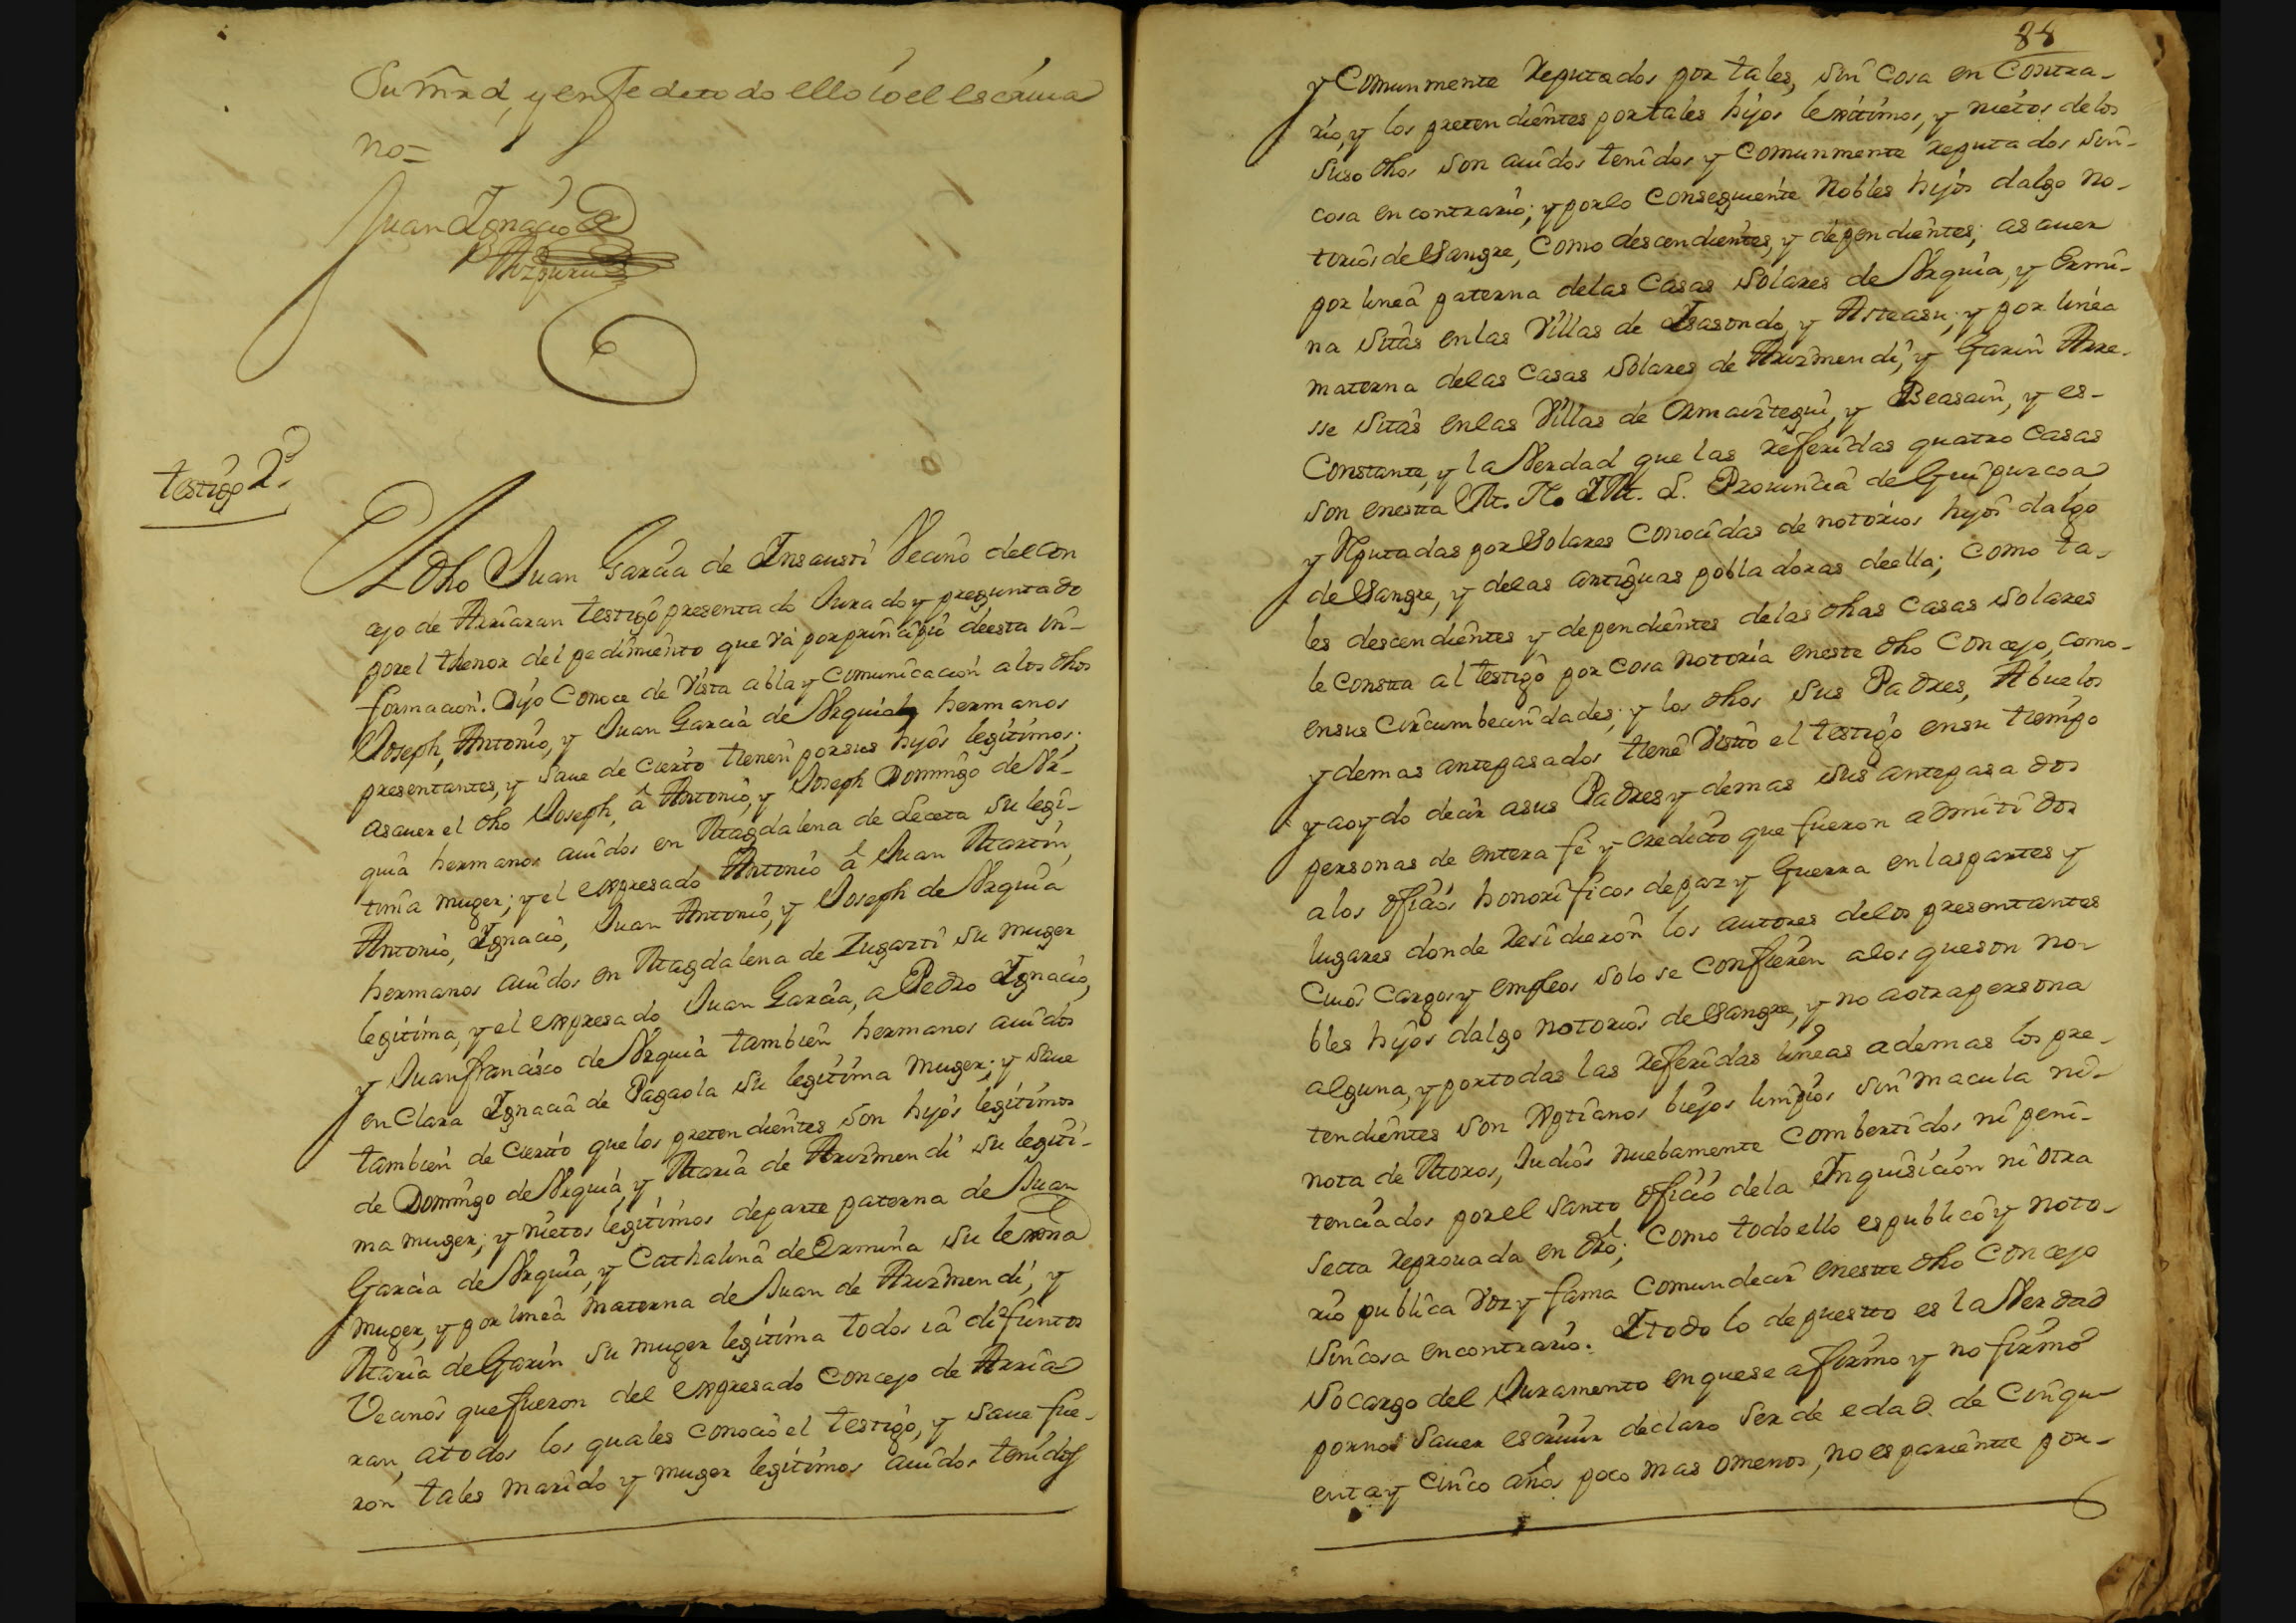 Su mrd, y en fe de todo ello io el escriua
no=
Juan Ignacio de
Aizpuru
testigo 2º.
El dho Juan Garcia de Insausti Vecino del con
cejo de Arriaran testigo presentado Jurado y preguntado
por el thenor del pedimiento que vá por prinçipio de esta in-
formacion. Dijo Conoce de Vista abla y Comunicacion a los dhos
Joseph, Antonio, y Juan Garcia de Vrquia hermanos
presentantes, y Saue de Cierto tienen por sus hijos legitimos;
asauer el dho Joseph, â Antonio, y Joseph Domingo de Vr-
quia hermanos auidos en Magdalena de Leceta su legi-
tima muger; y el expresado Antonio â Juan Martin,
Antonio, Ygnacio, Juan Antonio, y Joseph de Vrquia
hermanos auidos en Magdalena de Zugarti su muger
legitima, y el expresado Juan Garcia, a Pedro Ignacio,
y Juan francisco de Vrquia tambien hermanos auidos
en Clara Ignacia de Pagaola su legitima muger; y Saue
tambien de Cierto que los pretendientes son hijos legitimos
de Domingo de Vrquia, y Maria de Arizmendi su legiti-
ma muger; y nietos legitimos de parte paterna de Juan
Garcia de Vrquia, y Cathalina de Ermina su lexma
muger, y por linea materna de Juan de Arizmendi, y
Maria de Garin su muger legitima todos ia difuntos
Vecinos que fueron del expresado Concejo de Arria
ran, a todos los quales conocio el testigo, y saue fue-
ron tales marido y muger legitimos auidos tenidos
88
y Comunmente Reputados por tales, sin Cosa en Contra-
rio, y los pretendientes por tales hijos lexitimos, y nietos de los
suso dhos son auidos tenidos y Comunmente reputados sin-
cosa en contrario; y por lo Conseguiente Nobles hijos dalgo no-
torios de Sangre, Como descendientes, y dependientes, asauer
por linea paterna de las Casas Solares de Vrquia, y Ermi-
na sitas en las Villas de Isasondo, y Asteasu; y por linea
materna de las Casas Solares de Arizmendi, y Garin Arre-
sse sitas en las Villas de Ormaiztegui, y Beasain, y es-
Constante, y la Verdad que las referidas quatro Casas
son en esta M. N. I M. L. Prouincia de Guipuzcoa
y Rputadas por Solares Conocidas de notorios hijos dalgo
de Sangre, y de las antiguas pobladoras de ella; Como ta-
les descendientes y dependientes de las dhas Casas Solares
le Consta al testigo por Cosa notoria en este dho Concejo, Como-
en sus Circumbecindades; y los dhos sus Padres, Abuelos
y demas antepasados tiene Visto el testigo en su tiempo
y a oydo decir a sus Padres y demas sus antepasados
personas de entera fê y Credito que fueron admitidos
a los oficios honorificos de paz y Guerra en las partes y
lugares donde Residieron los autores de los presentantes
Cuios Cargos y empleos solo se Confieren a los que son no-
bles hijos dalgo notorios de Sangre, y no a otra persona
alguna, y por todas las Referidas lineas a demas los pre-
tendientes son Xptianos biejos limpios sin macula ni-
nota de Moros, Judios nuebamente Combertidos ni peni-
tenciados por el Santo Oficio de la Inquisicion ni otra
Secta Reprouada en dro; Como todo ello es publico y noto-
rio publica Voz y fama Comun decir en este dho Concejo
sin cosa en contrario. I todo lo depuesto es la Verdad
so cargo del Juramento en que se afirmo y no firmó
por no Sauer escriuir declaro Ser de edad de Cinqu-
enta y Cinco años poco mas o menos, no es pariente por-